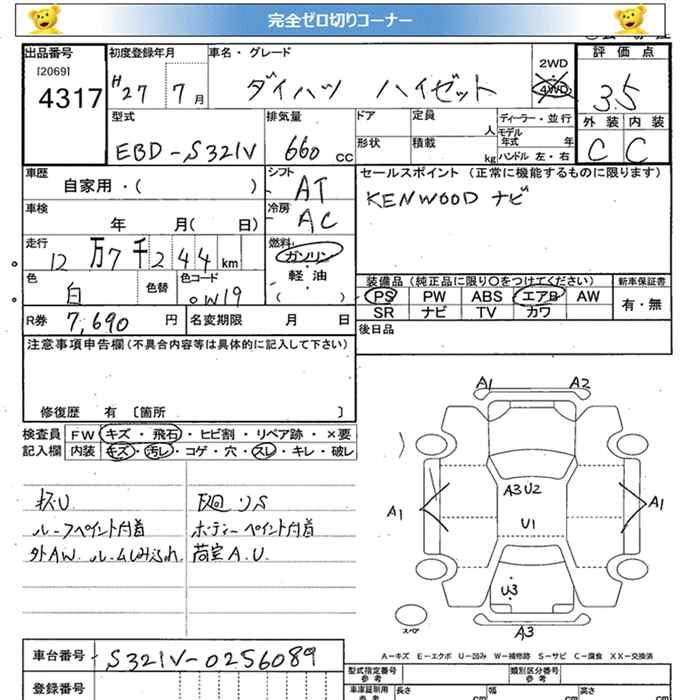 完全ゼロ切りコーナー
出品番号
[2069]
4317
初度登録年月
H27 7月
車名・グレード
ダイハツ ハイゼット
2WD
4WD
評価点
3.5
外装 内装
C C
型式
EBD-S321V
排気量
660 cc
ドア
定員
人
形状
積載
kg
ディーラー・並行
モデル年式 年
ハンドル 左・右
車歴
自家用・( )
シフト
AT
車検
年 月( 日)
冷房
AC
走行
12万7千244km
燃料
ガソリン
軽・油
( )
色
白
色替
色コード
W19
R券 7,690 円
名変期限 月 日
セールスポイント (正常に機能するものに限ります)
KENWOOD ナビ
装備品 (純正品に限り○をつけてください)
PS PW ABS エアB AW
SR ナビ TV カワ
新車保証書
有・無
後日品
注意事項申告欄(不具合内容等は具体的に記入して下さい)
修復歴 有 〔箇所 〕
検査員記入欄
FW キズ・飛石・ヒビ割・リペア跡・×要
内装 キズ・汚レ・コゲ・穴・スレ・キレ・破レ
ルーフペイント付着
ボディーペイント付着
外AW
荷室A.U.
A1 A2
A3U2
U1
A1
A1
U3
A3
スペア
A-キズ E-エクボ U-凹み W-補修跡 S-サビ C-腐食 XX-交換済
車台番号 S321V-0256089
登録番号
型式指定番号
参考
類別区分番号
参考
車庫証明用
参考
長さ cm
幅 cm
高さ cm